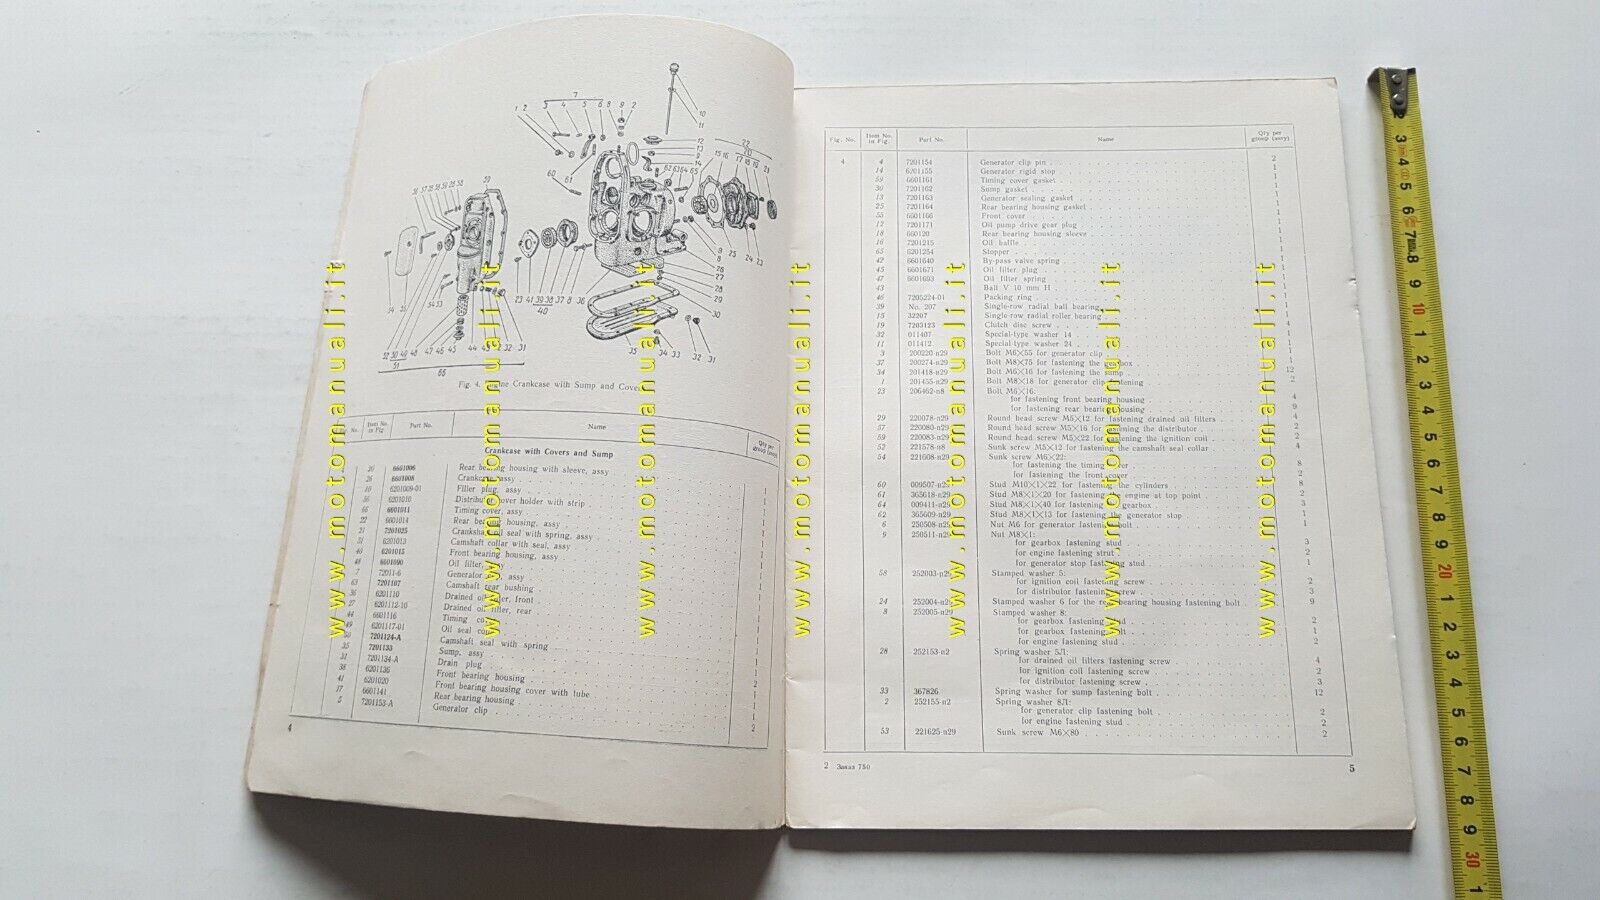 Fig. 4. Engine Crankcase with Sump and Covers
Fig. No. Item No. in Fig. Part No. Name Qty per group (assy)
Crankcase with Covers and Sump
6601006 Rear bearing housing with sleeve, assy
26 6601008 Crankcase, assy
10 6201009-01 Filler plug, assy
6201010 Distributor cover holder with strip
6601011 Timing cover, assy
22 6601014 Rear bearing housing, assy
21 7201025 Crankshaft oil seal with spring, assy
6201013 Camshaft collar with seal, assy
40 6201015 Front bearing housing, assy
48 6601090 Oil filter, assy
7 72011-6 Generator clip, assy
63 7201107 Camshaft rear bushing
36 6201110 Drained oil filter, front
27 6201112-10 Drained oil filter, rear
44 6601116 Timing cover
49 6201117-01 Oil seal
7201124-A Camshaft seal with spring
35 7201133 Sump, assy
31 7201134-A Drain plug
38 6201136 Front bearing housing
41 6201020 Front bearing housing cover with tube
17 6601141 Rear bearing housing
5 7201153-A Generator clip 2
4
Fig. No. Item No. in Fig. Part No. Name Q'ty per group (assy)
4 4 7201154 Generator clip pin 2
14 6201155 Generator rigid stop 1
59 6601161 Timing cover gasket 1
30 7201162 Sump gasket 1
13 7201163 Generator sealing gasket 1
25 7201164 Rear bearing housing gasket 1
55 6601166 Front cover 1
12 7201171 Oil pump drive gear plug 1
18 660120 Rear bearing housing sleeve 1
16 7201215 Oil baffle 1
65 6201254 Stopper 1
42 6601640 By-pass valve spring 1
45 6601671 Oil filter plug 1
47 6601693 Oil filter spring 1
43 Ball V 10 mm H 1
46 7205224-01 Packing ring 1
39 No. 207 Single-row radial ball bearing 1
15 32207 Single-row radial roller bearing 1
19 7203123 Clutch disc screw 4
32 011407 Special-type washer 14
11 011412 Special-type washer 24
3 200220-п29 Bolt M6×55 for generator clip
37 200274-п29 Bolt M8×75 for fastening the gearbox 1
34 201418-п29 Bolt M6×16 for fastening the sump 12
1 201455-п29 Bolt M8×18 for generator clip fastening 2
23 206462-п8 Bolt M6×16:
for fastening front bearing housing 4
for fastening rear bearing housing 9
29 220078-п29 Round head screw M5×12 for fastening drained oil filters 4
57 220080-п29 Round head screw M5×16 for fastening the distributor 2
59 220083-п29 Round head screw M5×22 for fastening the ignition coil 2
52 221578-п8 Sunk screw M5×12 for fastening the camshaft seal collar 4
54 221608-п29 Sunk screw M6×22:
for fastening the timing cover 8
for fastening the front cover 2
60 009507-п29 Stud M10×1×22 for fastening the cylinders 8
61 365618-п29 Stud M8×1×20 for fastening the engine at top point 2
64 009411-п29 Stud M8×1×40 for fastening the gearbox 3
62 365609-п29 Stud M8×1×13 for fastening the generator stop 1
6 250508-п29 Nut M6 for generator fastening bolt 1
9 250511-п29 Nut M8×1:
for gearbox fastening stud 3
for engine fastening strut 2
for generator stop fastening stud 1
58 252003-п29 Stamped washer 5:
for ignition coil fastening screw 2
for distributor fastening screw 3
24 252004-п29 Stamped washer 6 for the rear bearing housing fastening bolt 9
8 252005-п29 Stamped washer 8:
for gearbox fastening stud 2
for gearbox fastening bolt 1
for engine fastening stud 2
28 252153-п2 Spring washer 5Л:
for drained oil filters fastening screw 4
for ignition coil fastening screw 2
for distributor fastening screw 3
33 367826 Spring washer for sump fastening bolt 12
2 252155-п2 Spring washer 8Л:
for generator clip fastening bolt 2
for engine fastening stud 2
53 221625-п29 Sunk screw M6×80 2
2 Заказ 750
5
www.motomanuali.it
www.motomanuali.it
www.motomanuali.it
www.motomanuali.it
www.motomanuali.it
www.motomanuali.it
www.motomanuali.it